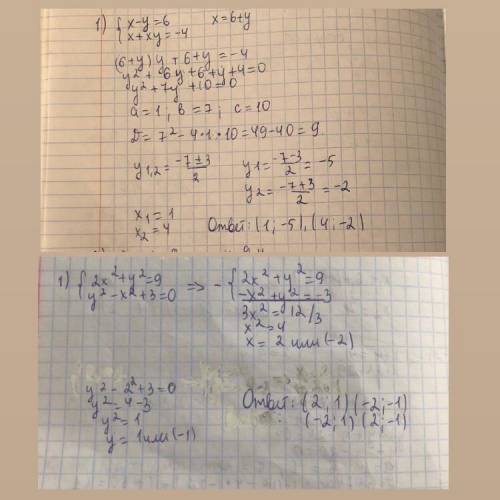 1) { x-y=6 x=6+y
x+xy=-4
(6+y)y+6+y=-4
y²+6y+6+y+4=0
y²+7y+10=0
a=1; b=7; c=10
D=7²-4·1·10=49-40=9
y1,2=-7±3/2 y1=-7-3/2=-5
y2=-7+3/2=-2
x1=1
x2=4 Ответ: (1;-5),(4;-2)
1) { 2x²+y²=9 => - { 2x²+y²=9
y²-x²+3=0 -x²+y²=-3
3x²=12/3
x²=4
x=2 или (-2)
y²-2²+3=0
y²=4-3
y²=1
y=1 или (-1)
Ответ: (2;1) (-2;-1)
(-2;1) (2;-1)